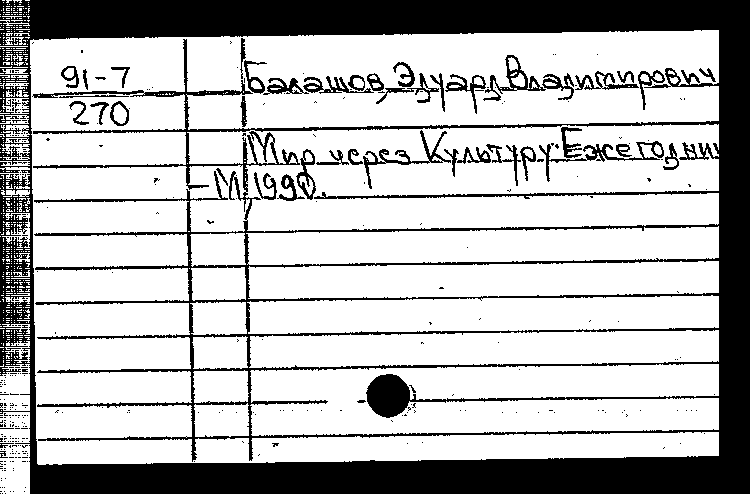 91-7
270
Балашов, Эдуард Владимирович
Мир через Культуру: Ежегодник
- М, 1990.